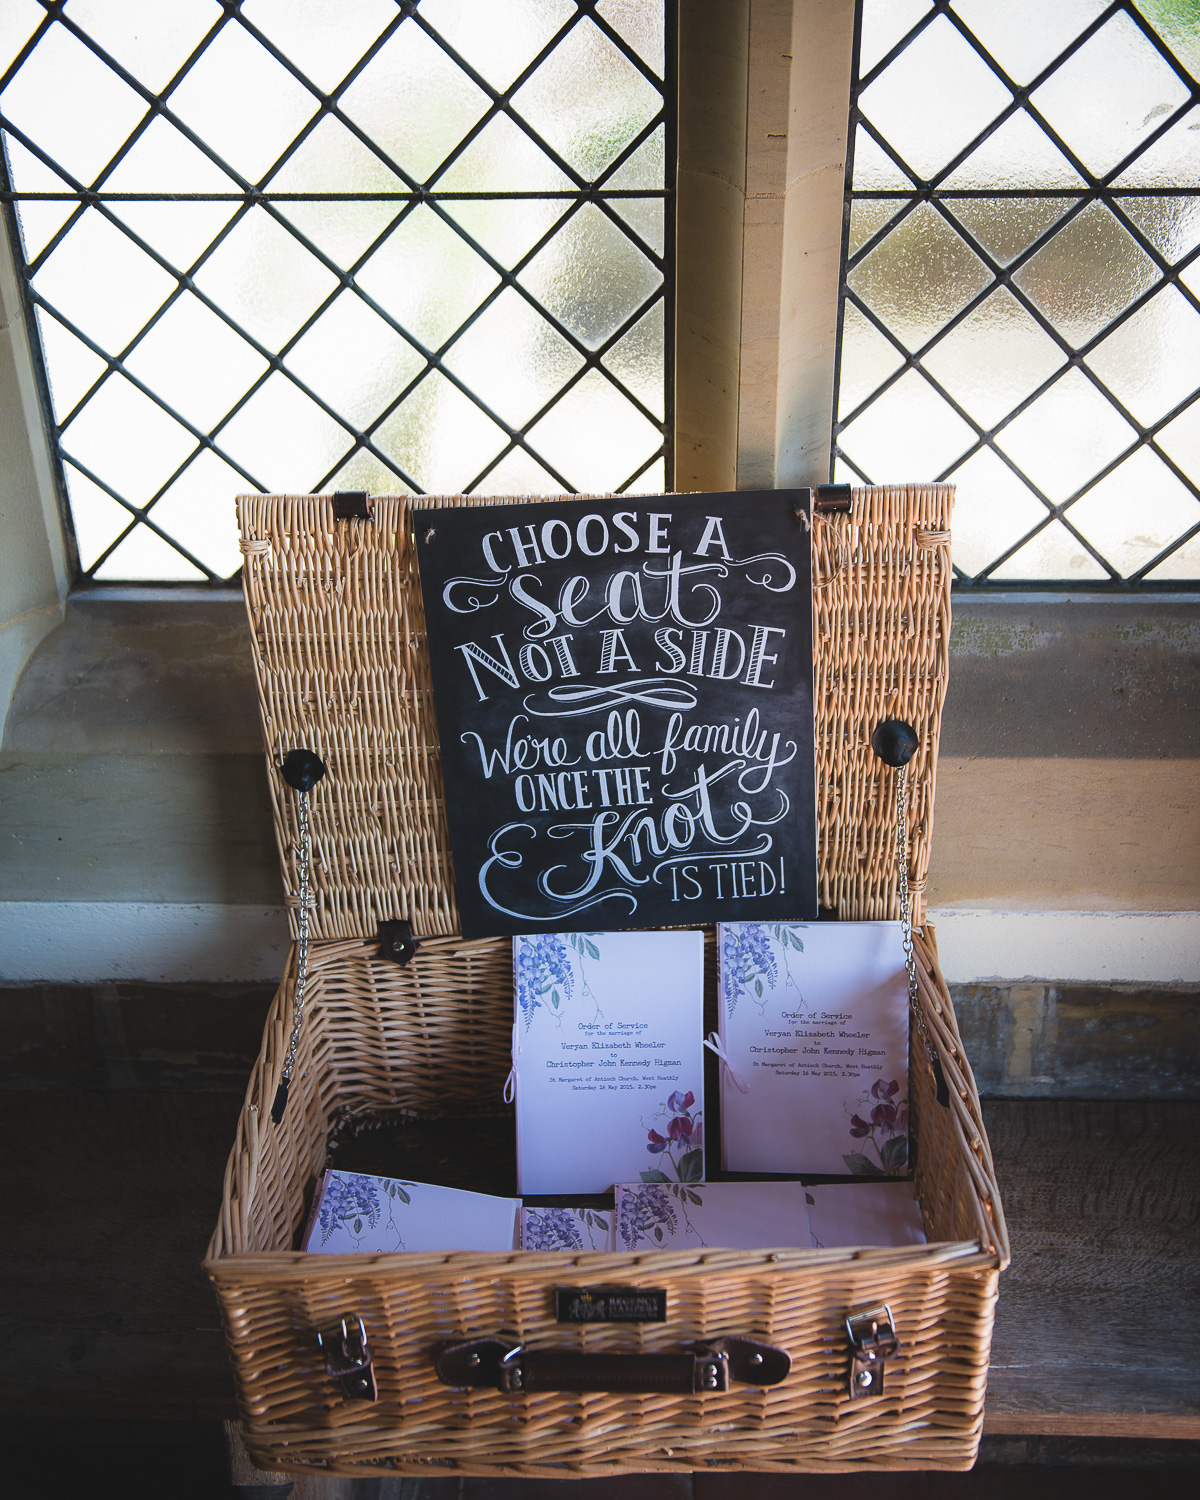 CHOOSE A
seat
NOT A SIDE
We're all family
ONCE THE
Knot
IS TIED!
Order of Service
for the marriage of
Veryan Elizabeth Wheeler
to
Christopher John Kennedy Higman
St Margaret of Antioch Church, West Hoathly
Saturday 16 May 2015, 2.30pm
Order of Service
for the marriage of
Veryan Elizabeth Wheeler
to
Christopher John Kennedy Higman
St Margaret of Antioch Church, West Hoathly
Saturday 16 May 2015, 2.30pm
REGENCY
HAMPERS